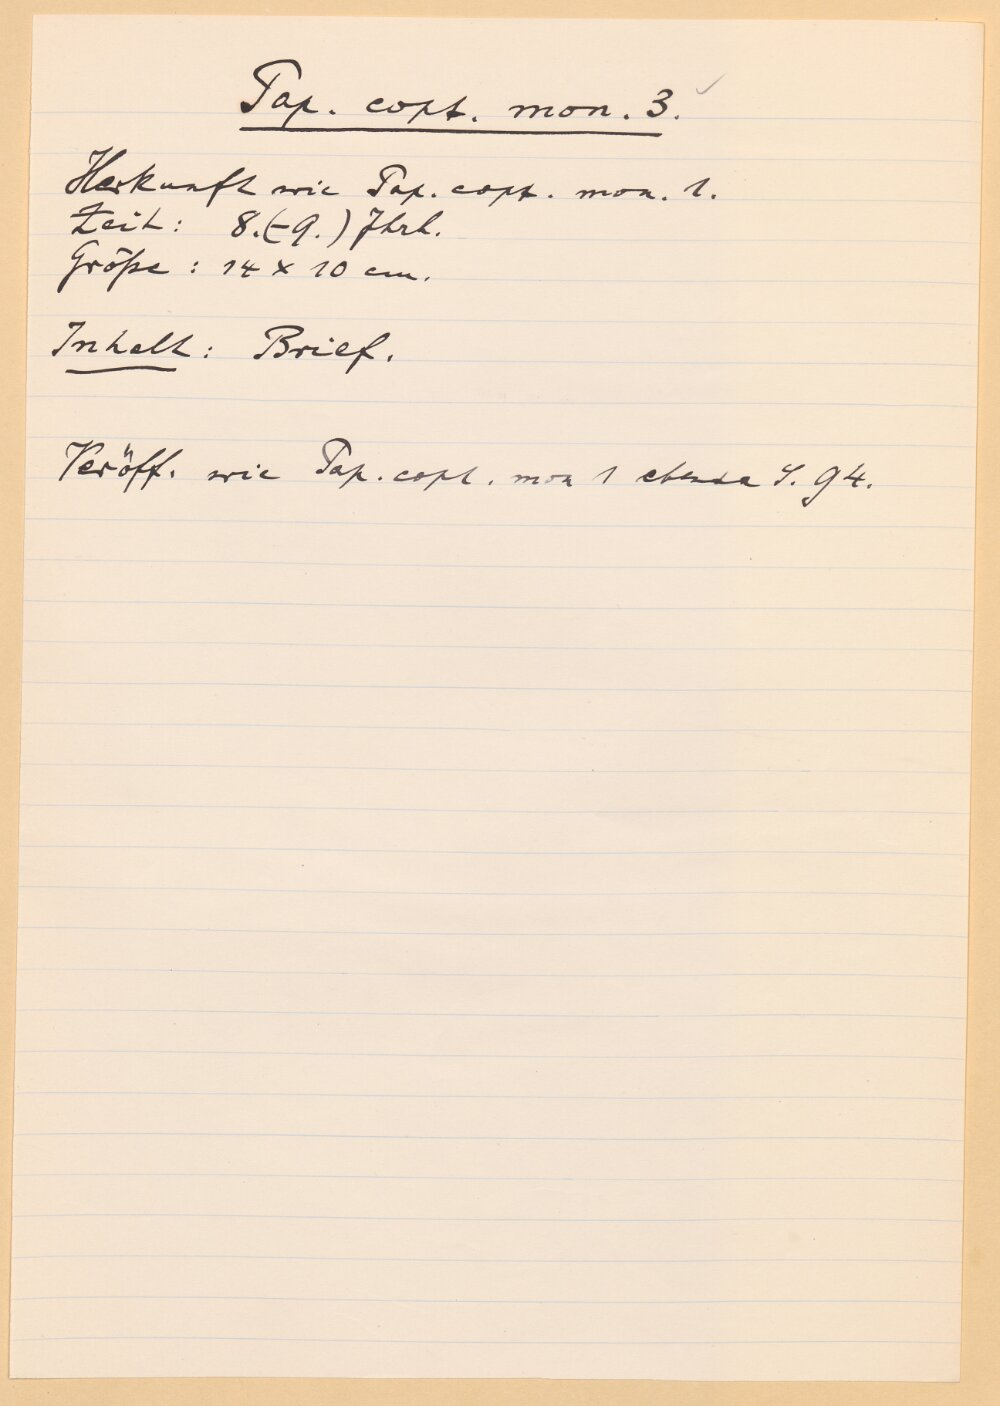 Pap. copt. mon. 3.
Herkunft wie Pap. copt. mon. 1.
Zeit: 8.(-9.) Jhrh.
Größe: 14 x 10 cm.
Inhalt: Brief.
Veröff. wie Pap. copt. mon 1 ebenda S. 94.